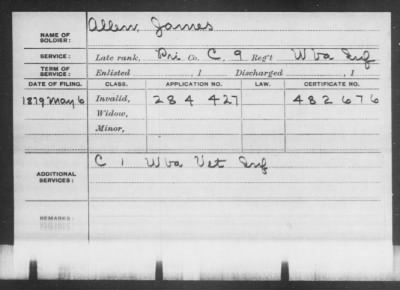 NAME OF SOLDIER: Allen, James
SERVICE: Late rank, Pri Co. C, 9 Reg't W Va Inf
TERM OF SERVICE: Enlisted , 1 Discharged , 1
DATE OF FILING. CLASS. APPLICATION NO. LAW. CERTIFICATE NO.
1879 May 6 Invalid, 284 427 482 676
Widow,
Minor,
ADDITIONAL SERVICES: C 1 W Va Vet Inf
REMARKS: